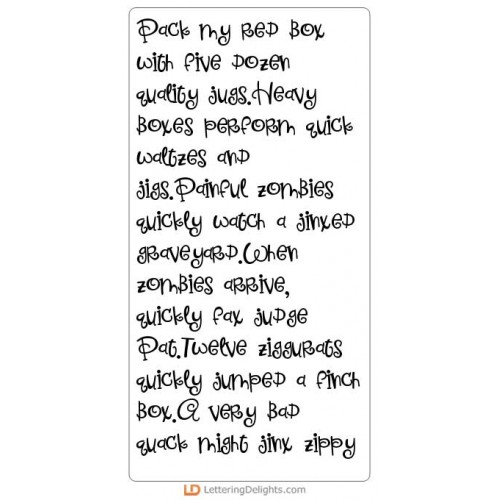 Pack my red box
with five dozen
quality jugs.Heavy
boxes perform quick
waltzes and
jigs.Painful zombies
quickly watch a jinxed
graveyard.When
zombies arrive,
quickly fax judge
Pat.Twelve ziggurats
quickly jumped a finch
box.A very bad
quack might jinx zippy
LD LetteringDelights.com